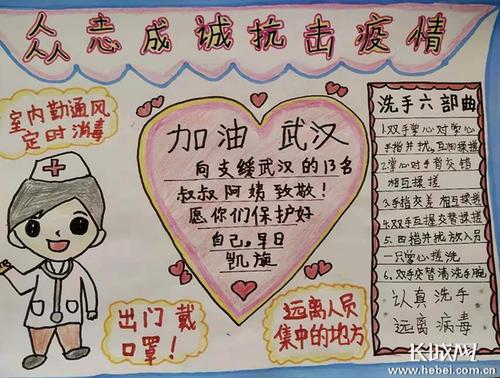 众志成诚抗击疫情
室内勤通风
定时消毒
加油 武汉
向支缓武汉的13名
叔叔阿姨致敬!
愿你们保护好
自己,早日
凯旋
出门戴
口罩!
远离人员
集中的地方
洗手六部曲
1.双手掌心对掌心
手指并扰,互相揉搓
2.掌心对手背交错
相互揉搓
3.手指交差相互揉搓
4.双手互握交替揉搓
5.四指并扰放入另
一只掌心搓洗
6.双手交替清洗手腕
认真洗手
远离病毒
长城网
www.hebei.com.cn